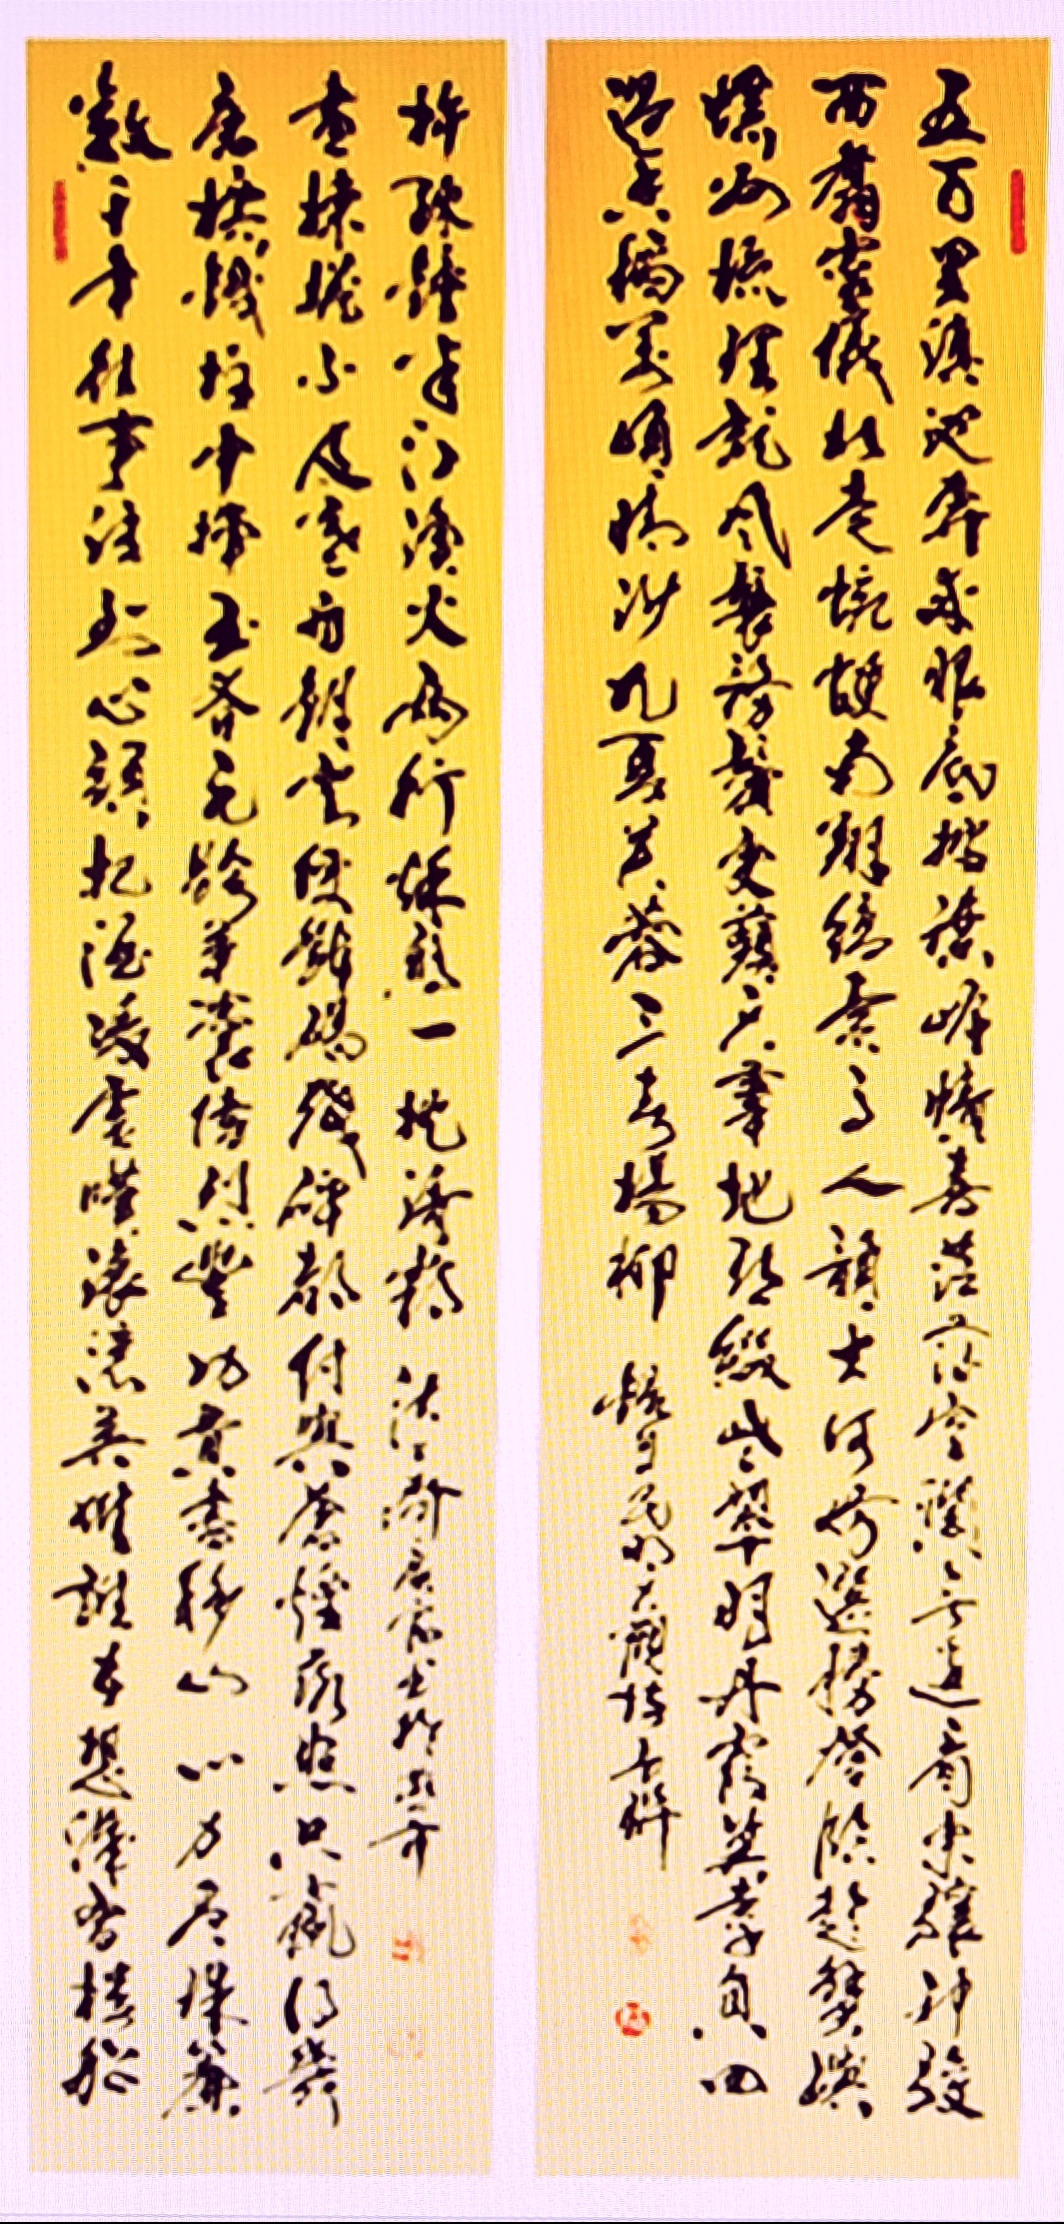 五百里滇池奔來眼底披襟岸幘喜茫茫空闊無邊看東驤神駿
西翥靈儀北走蜿蜒南翔縞素高人韻士何妨選勝登臨趁蟹嶼
螺洲梳裹就風鬟霧鬢更蘋天葦地點綴些翠羽丹霞莫孤負四
圍香稻萬頃晴沙九夏芙蓉三春楊柳 昆明大觀樓
數千年往事注到心頭把酒凌虛嘆滾滾英雄誰在想漢習樓船
唐標鐵柱宋揮玉斧元跨革囊偉烈豐功費盡移山心力尽珠簾
畫棟捲不及暮雨朝雲便斷碣殘碑都付與蒼煙落照只贏得幾
杵疏鐘半江漁火兩行秋雁一枕清霜